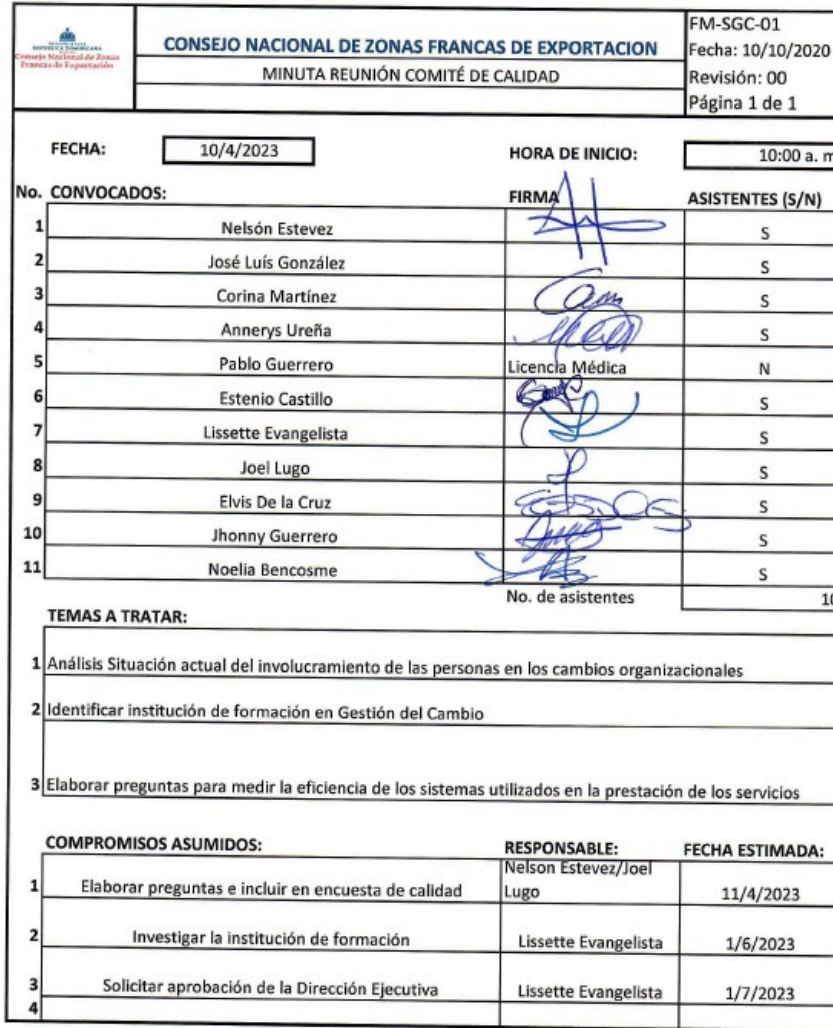 REPÚBLICA DOMINICANA
Consejo Nacional de Zonas
Francas de Exportación
CONSEJO NACIONAL DE ZONAS FRANCAS DE EXPORTACION
MINUTA REUNIÓN COMITÉ DE CALIDAD
FM-SGC-01
Fecha: 10/10/2020
Revisión: 00
Página 1 de 1
FECHA: 10/4/2023 HORA DE INICIO: 10:00 a. m
No. CONVOCADOS: FIRMA ASISTENTES (S/N)
1 Nelsón Estevez S
2 José Luís González S
3 Corina Martínez S
4 Annerys Ureña S
5 Pablo Guerrero Licencia Médica N
6 Estenio Castillo S
7 Lissette Evangelista S
8 Joel Lugo S
9 Elvis De la Cruz S
10 Jhonny Guerrero S
11 Noelia Bencosme S
No. de asistentes 10
TEMAS A TRATAR:
1 Análisis Situación actual del involucramiento de las personas en los cambios organizacionales
2 Identificar institución de formación en Gestión del Cambio
3 Elaborar preguntas para medir la eficiencia de los sistemas utilizados en la prestación de los servicios
COMPROMISOS ASUMIDOS: RESPONSABLE: FECHA ESTIMADA:
1 Elaborar preguntas e incluir en encuesta de calidad Nelson Estevez/Joel
Lugo 11/4/2023
2 Investigar la institución de formación Lissette Evangelista 1/6/2023
3 Solicitar aprobación de la Dirección Ejecutiva Lissette Evangelista 1/7/2023
4